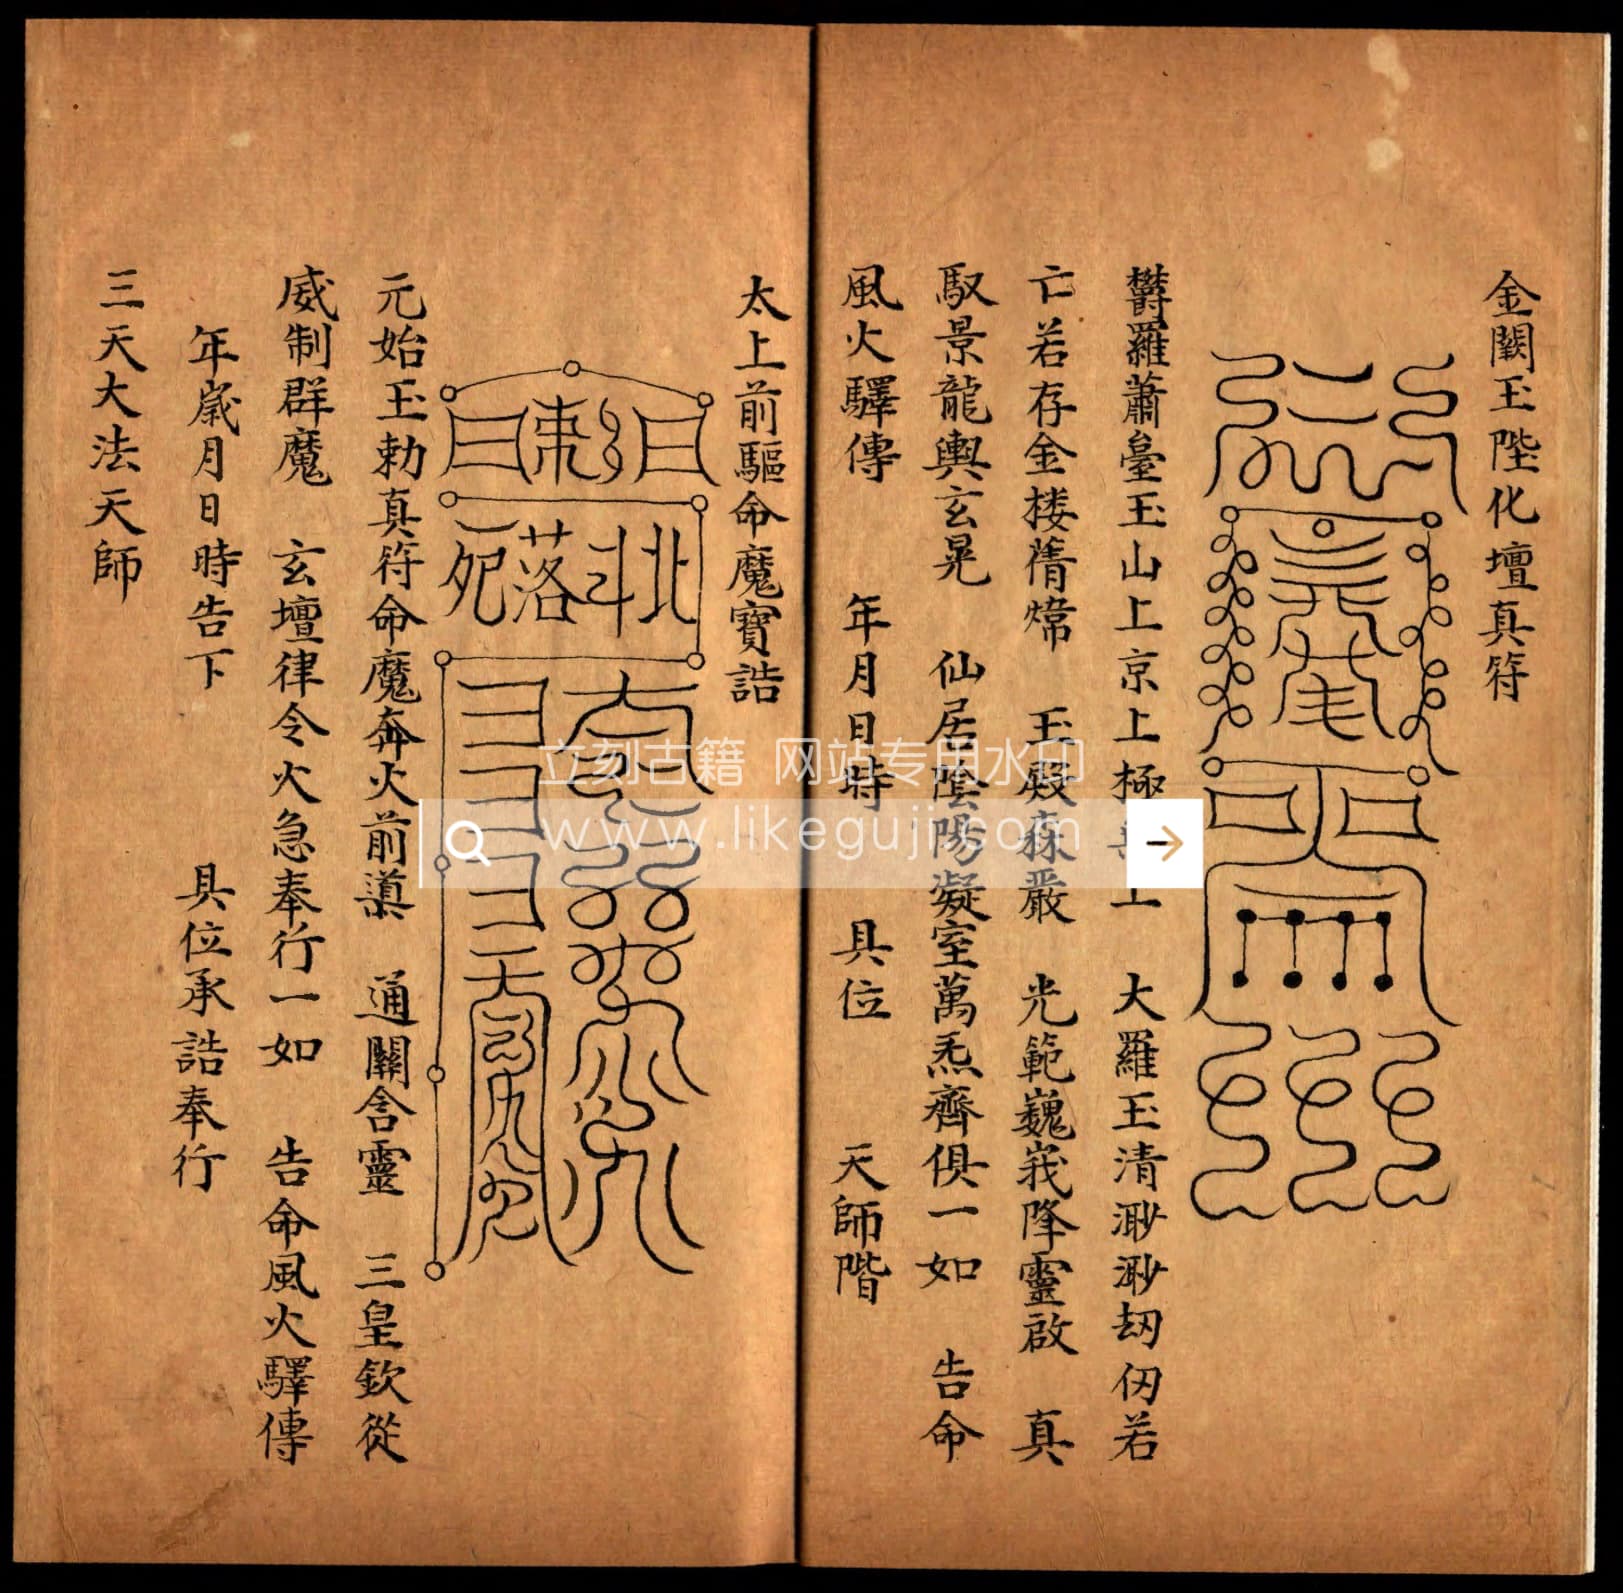 金闕玉陛化壇真符
欝羅蕭臺玉山上京上極無上 大羅玉清渺渺劫仞若
亡若存金楼蒨煒 玉殿森嚴 光範巍峩降靈啟 真
馭景龍輿玄晃 仙居陰陽凝室萬炁齊俱一如 告命
風火驛傳 年月日時 具位 天師階
太上前驅命魔寶誥
北斗
落死
元始玉勅真符命魔奔火前導 通關舍靈 三皇欽從
威制群魔 玄壇律令火急奉行一如 告命風火驛傳
年歲月日時告下 具位承誥奉行
三天大法天師
立刻古籍 网站专用水印
www.likeguji.com